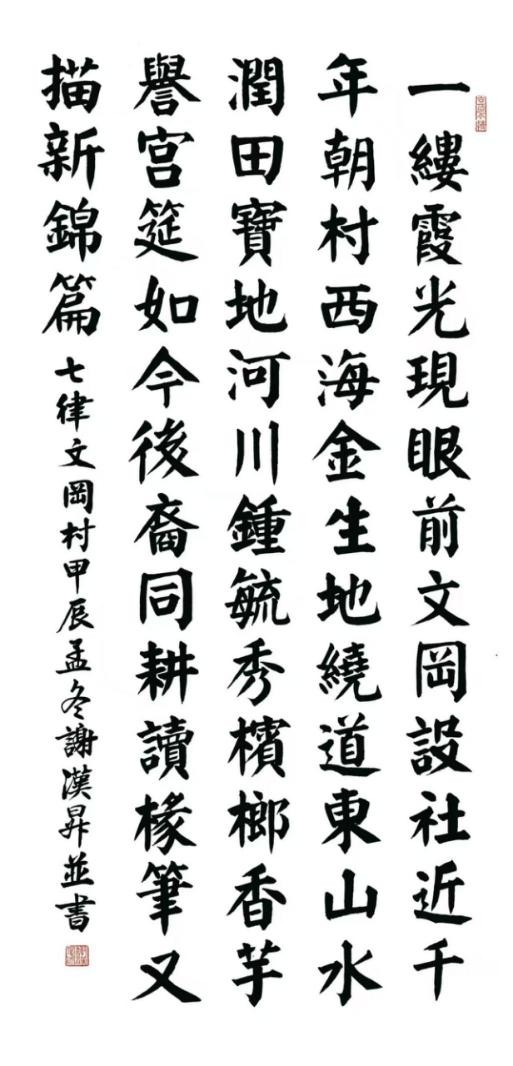 一縷霞光現眼前文岡設社近千
年朝村西海金生地繞道東山水
潤田寶地河川鍾毓秀檳榔香芋
譽宮筵如今後裔同耕讀椽筆又
描新錦篇
七律文岡村甲辰孟冬謝漢昇並書